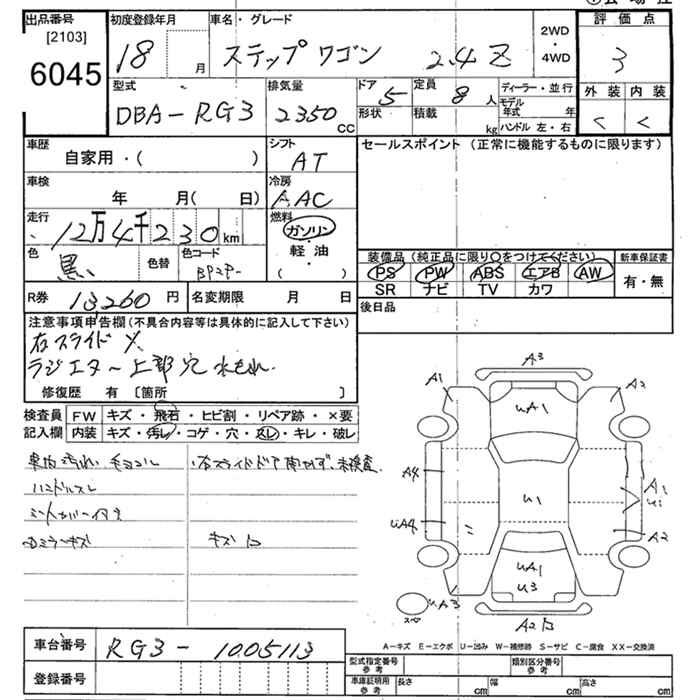 出品番号
[2103]
6045
初度登録年月
18 月
車名・グレード
ステップワゴン 2.4Z
2WD
・
4WD
評価点
3
型式
DBA-RG3
排気量
2350 CC
ドア 5
形状
定員 8 人
積載 kg
ディーラー・並行
モデル年式 年
ハンドル 左・右
外装 内装
C C
車歴
自家用・( )
シフト
AT
車検
年 月( 日)
冷房
AAC
走行
12万4千230 km
燃料
ガソリン
軽・油
( )
色
黒
色替
色コード
セールスポイント (正常に機能するものに限ります)
装備品 (純正品に限り○をつけてください)
新車保証書
PS PW ABS エアB AW
SR ナビ TV カワ
有・無
R券 13260 円
名変期限 月 日
後日品
注意事項申告欄(不具合内容等は具体的に記入して下さい)
右スライド ×.
ラジエター上部穴 水もれ.
修復歴 有 [箇所 ]
検査員
記入欄
FW キズ・飛石・ヒビ割・リペア跡・×要
内装 キズ・汚レ・コゲ・穴・スレ・キレ・破レ
車内汚れ
右スライドドア開かず、未検査
ハンドルスレ
ミラーキズ
キズ凹
A1
A3
A2
UA1
A4
U1
A1
UA4
A2
UA1
U3
UA3
スペ
A2凹
A-キズ E-エクボ U-凹み W-補修跡 S-サビ C-腐食 XX-交換済
車台番号
RG3-1005113
登録番号
型式指定番号
参考
類別区分番号
参考
車庫証明用
参考
長さ cm
幅 cm
高さ cm